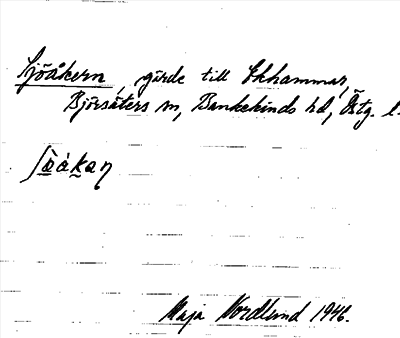 Sjöåkern, gärde till Ekhammar,
Björsäters sn, Bankekinds hd, Östg. l.
ʃö̀åkaɳ
Maja Nordlund 1946.